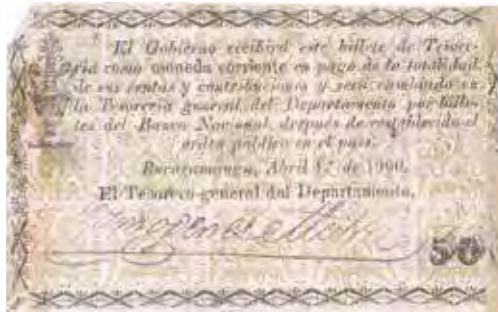 El Gobierno recibirá este billete de Tesore-
ría como moneda corriente en pago de la totalidad
de sus rentas y contribuciones y será cambiado en
la Tesorería general del Departamento por bille-
tes del Banco Nacional, después de restablecido el
orden público en el país.
Bucaramanga, Abril de 1900.
El Tesorero general del Departamento,
50